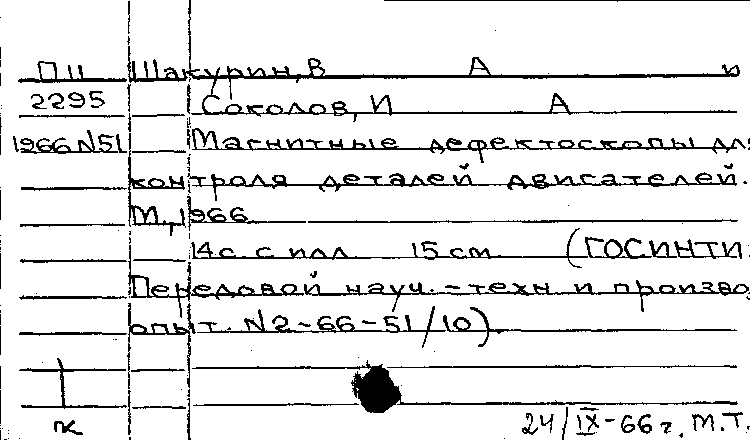 П11 Шакурин, В А и
2295 Соколов, И А
1966 N51 Магнитные дефектоскопы для
контроля деталей двигателей.
М., 1966
14 с. с илл 15 см (ГОСИНТИ.
Передовой науч.-техн и произво
опыт. N2-66-51/10).
к
24/IX-66 г. М.Т.